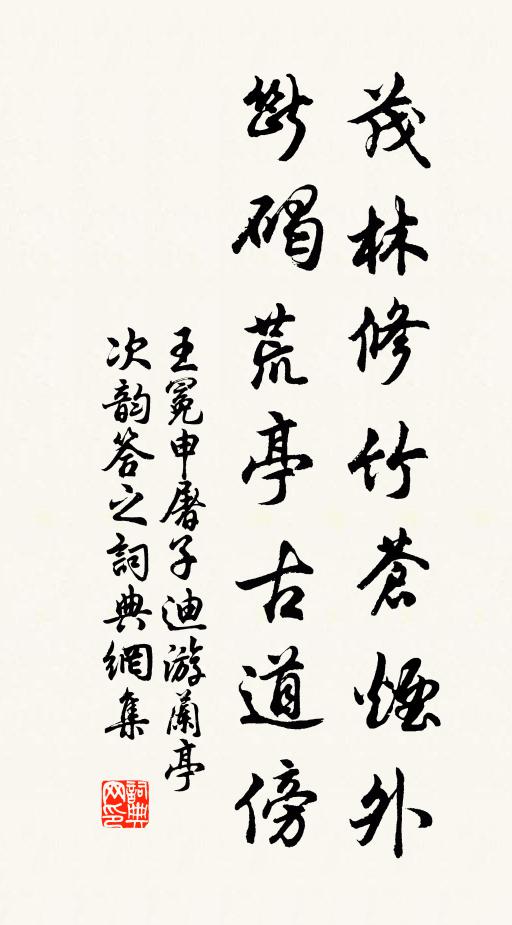 茂林修竹蒼煙外
斷碣荒亭古道傍
王冕申屠子迪游蘭亭
次韵答之詞典網集
詞典
网印